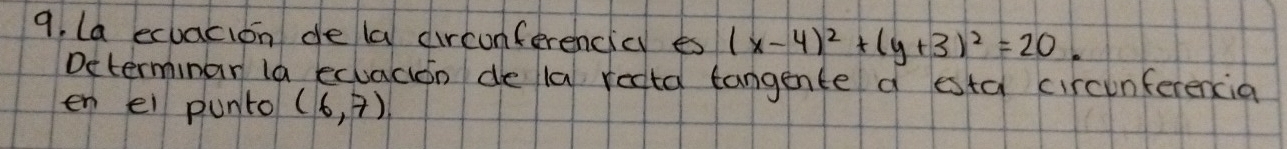 9. La ecuación de la circunferencia es (x-4)² + (y+3)² = 20.
Determinar la ecuación de la recta tangente a esta circunferencia
en el punto (6,7)